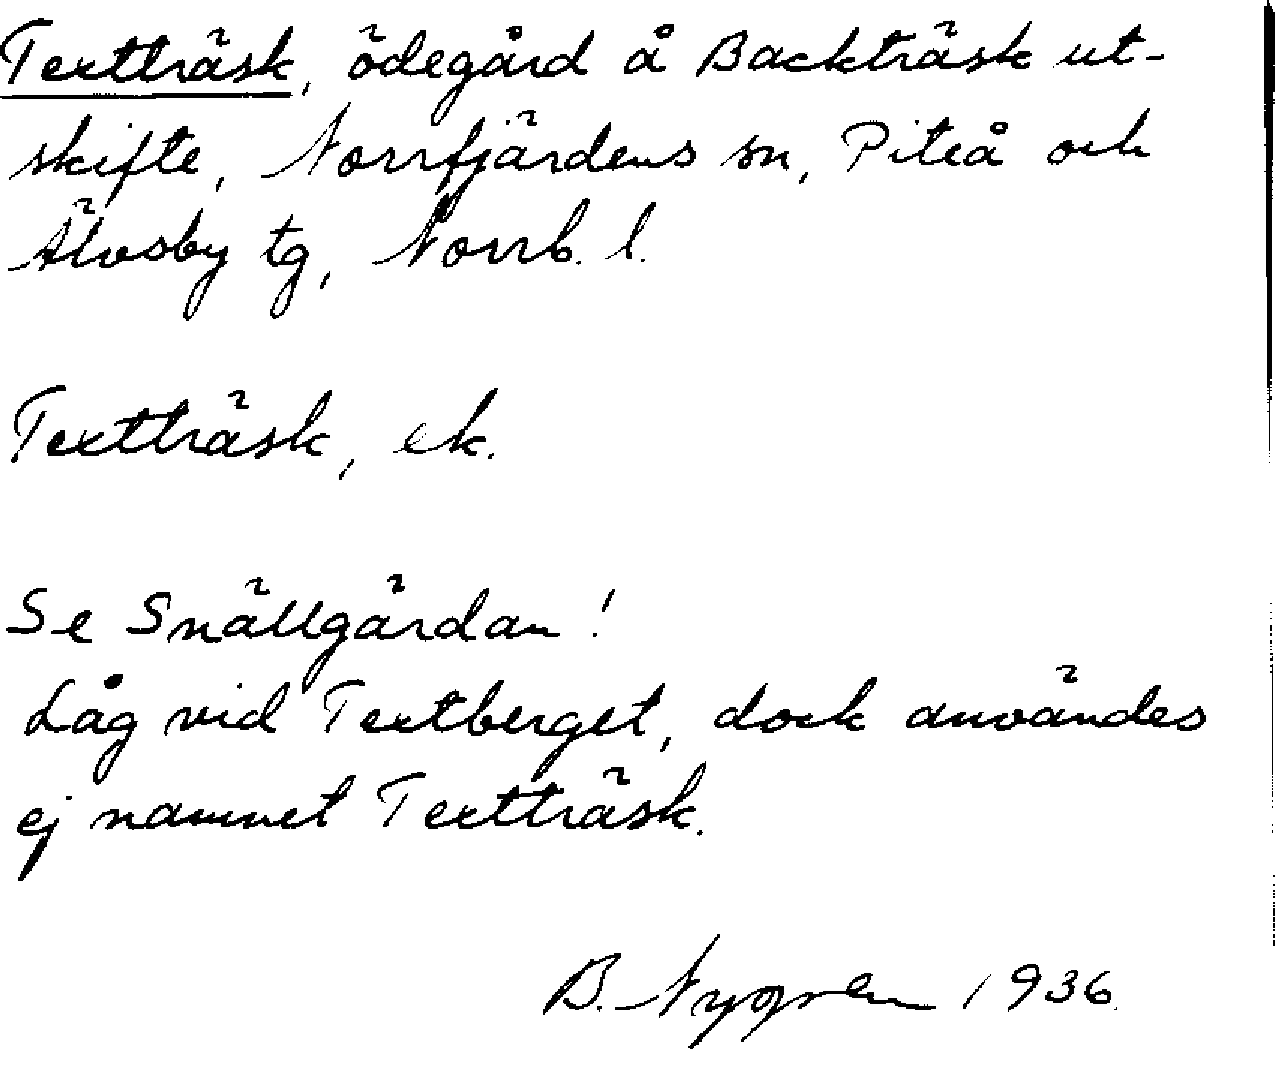 Textträsk, ödegård å Backträsk ut-
skifte, Norrfjärdens sn, Piteå och
Älvsby tg, Norrb. l.
Textträsk, ek.
Se Snällgårdan!
Låg vid Textberget, dock användes
ej namnet Textträsk.
B. Nygren 1936.